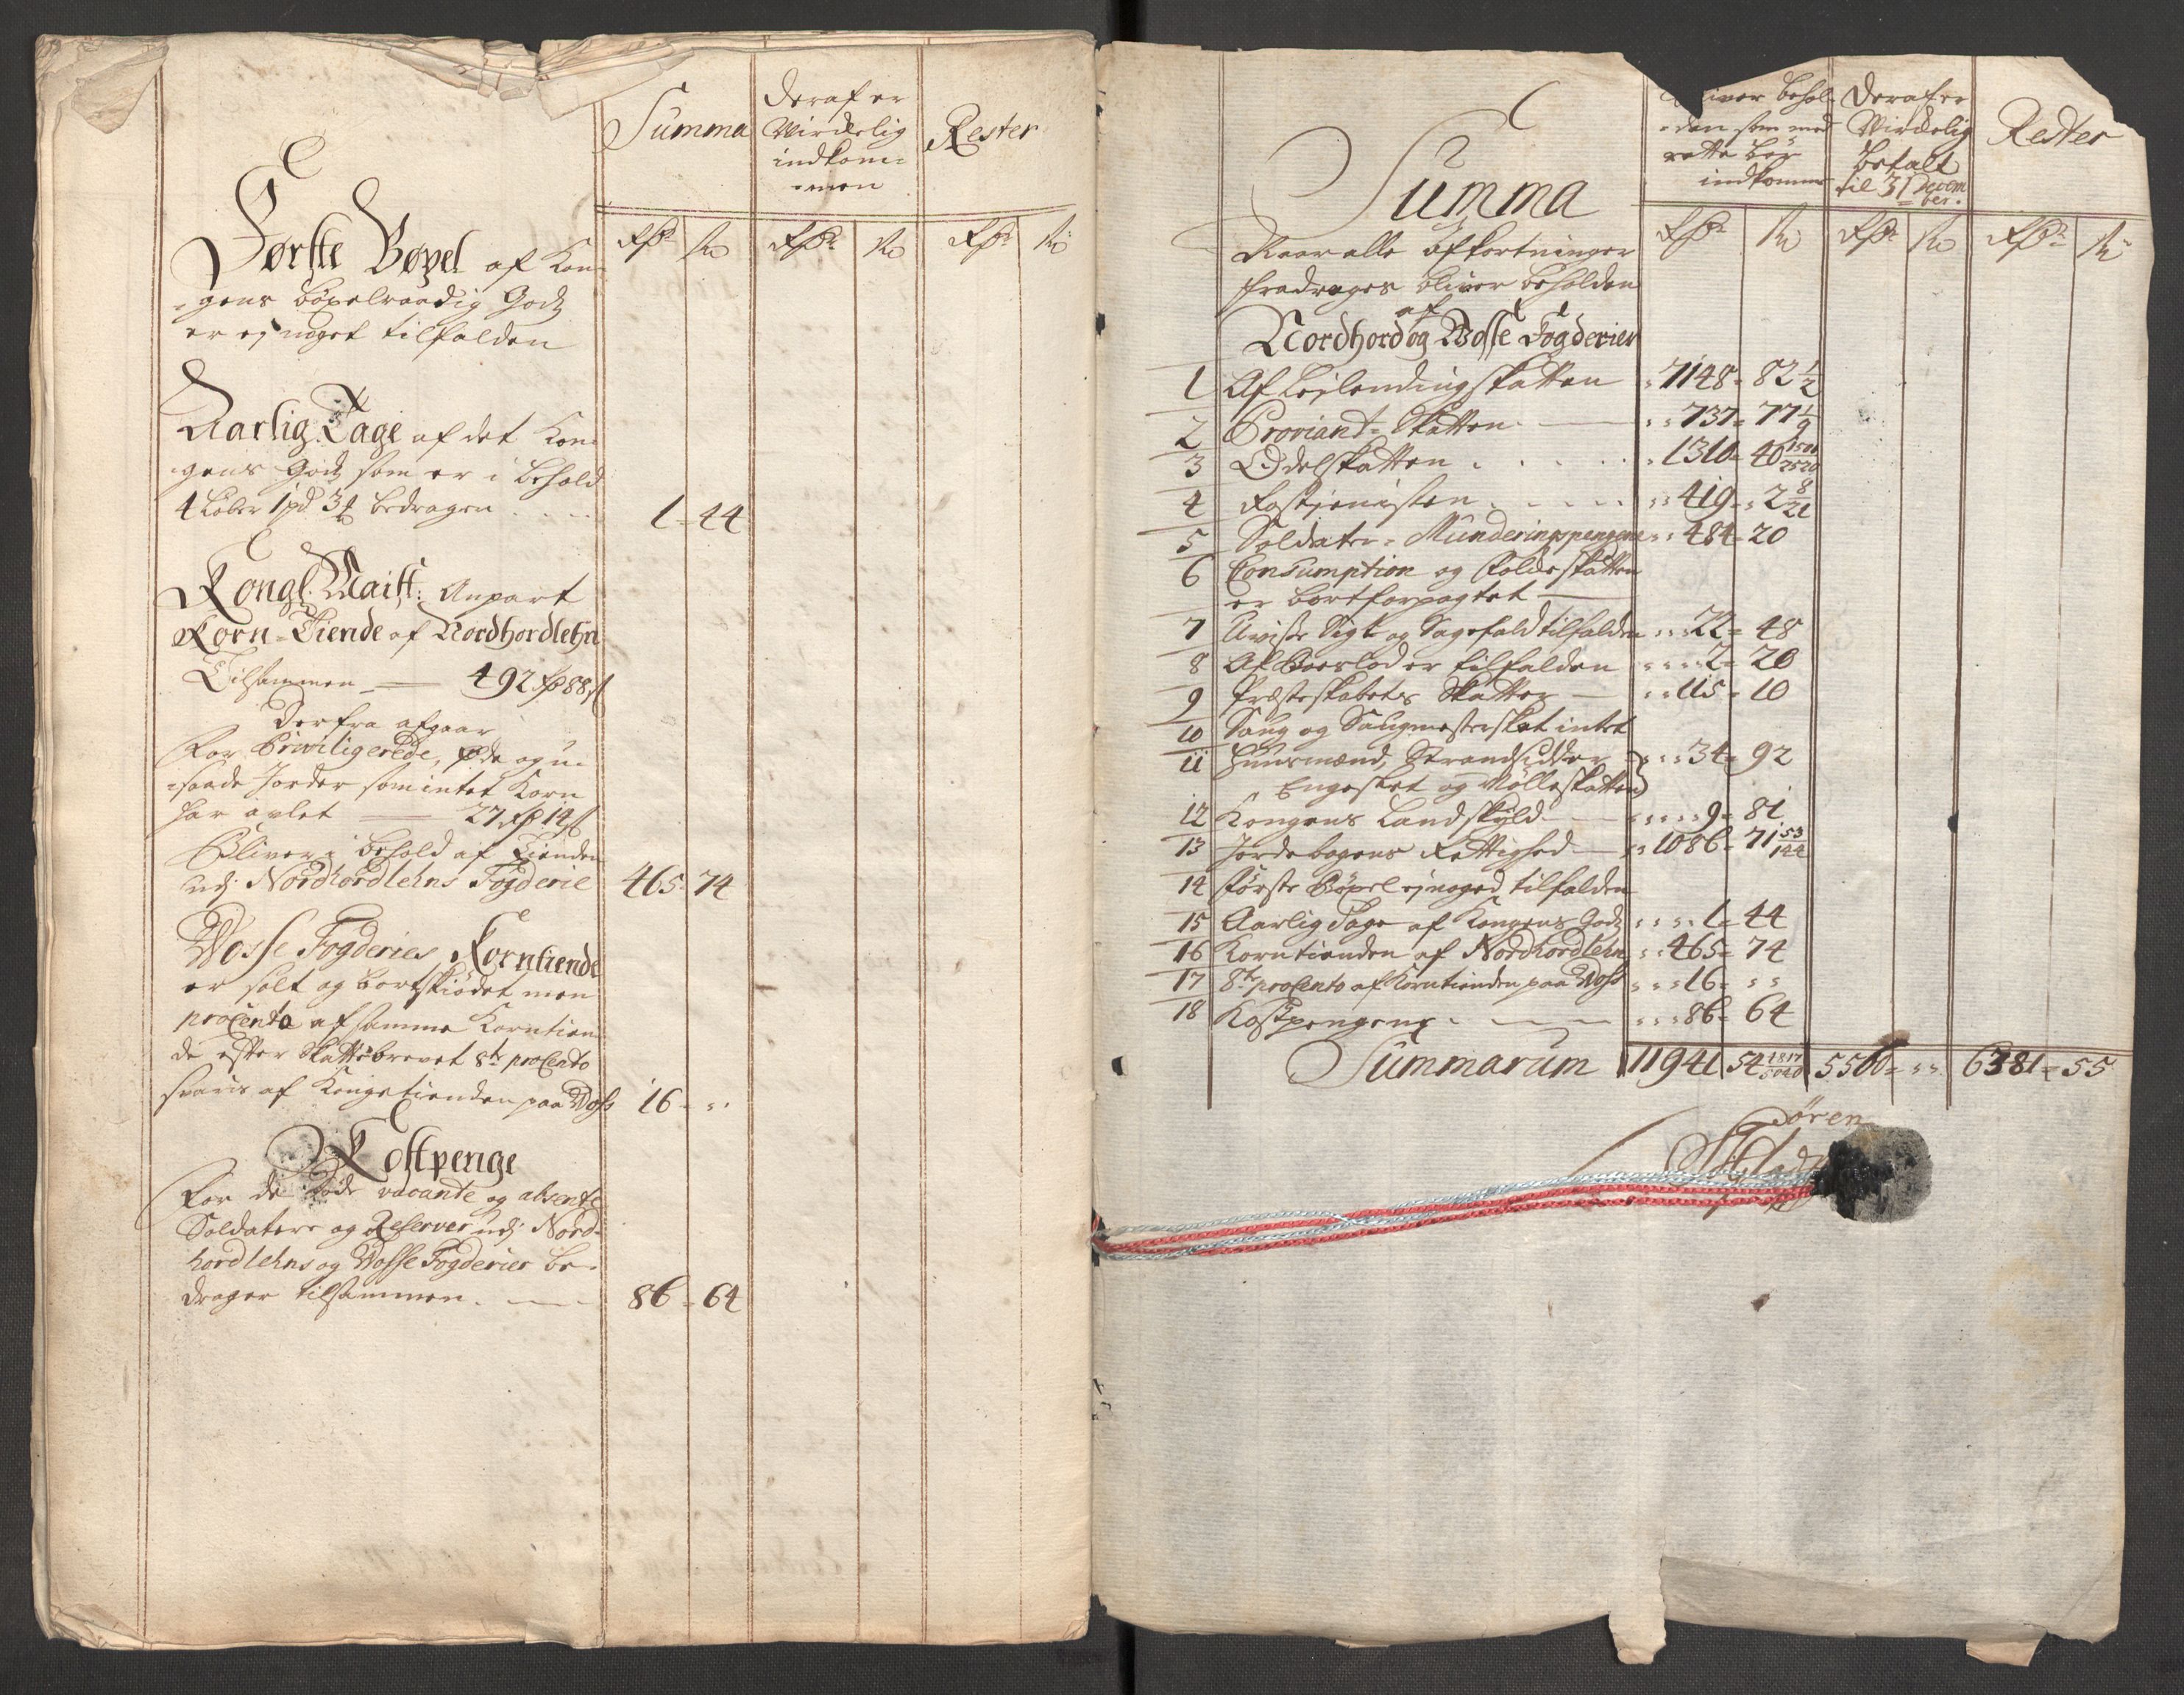 Summa
Deraf er
Wirckelig
indkom=
=men
Rester
Rdr
ß
Rdr
ß
Rdr
ß
Første Bøxel af Kon
=gens bøxelraadig Godz
er ej noget tilfalden
Aarlig Tage af det Kon
=gens Godz som er i behold
4 Løber 1 pd 3 bedragen 1 - 44
Kongl: Maitt: Anpart
Korn-Tiende af Nordhordlehn
Tilsammen 492 Rdr 88 ß
Derfra afgaar
For Priviligerede, Øde og u=
=saade Jorder som intet Korn
har avlet 27 Rdr 14 ß
Bliver i behold af Tienden
udj Nordhordlehns Fogderie 465 - 74
Wosse Fogderies Korntiende
er solt og bortskiødet men
proCento af samme Korntien
de efter Skattebrevet 8te proCento
svaris af Kongetienden paa Woss 16 - "
Kostpenge
For de døde vacante og absente
Soldater og Reserver udj Nord=
hordlehns og Wosse Fogderier be=
drager tilsammen 86 - 64
Summa
Naar alle afkortninger
fradrages bliver beholden
af
Nordhord og Wosse Fogderier
bliver behol=
=den som med
rette bør
indkomme
Deraf er
Wirckelig
betalt
til 31 Decem
ber.
Rester
Rdr
ß
Rdr
ß
Rdr
ß
1 Af Lejlendingskatten 7148 - 82 1/2
2 Proviant-Skatten 737 - 77 1/9
3 Odelskatten 1310 - 40
4 Rostienisten 419 - 2 8/21
5 Soldater-Munderingspengene 484 - 20
6 Consumption og Foldeskatten
er bortforpagtet
7 Uwisse Sigt og Sagefald tilfalden 22 - 48
8 Af Boeslod er tilfalden 2 - 20
9 Præsteskabets Skatter 115 - 10
10 Saug og Saugmesterskat intet
11 Huusmænd, Strandsidder 34 - 92
Engeskat og Mølleskatten
12 Kongens Landskyld 9 - 81
13 Jordebogens Rettighed 1086 - 71 53/144
14 Første Bøxel ej noged tilfalden
15 Aarlig Tage af Kongens Godz 1 - 44
16 Korntienden af Nordhordlehn 465 - 74
17 8te proCento af Korntienden paa Woss 16 - "
18 Kostpengene 86 - 64
Summarum 11941 54 1817/5040 5560 - " 6381 - 55
Søren